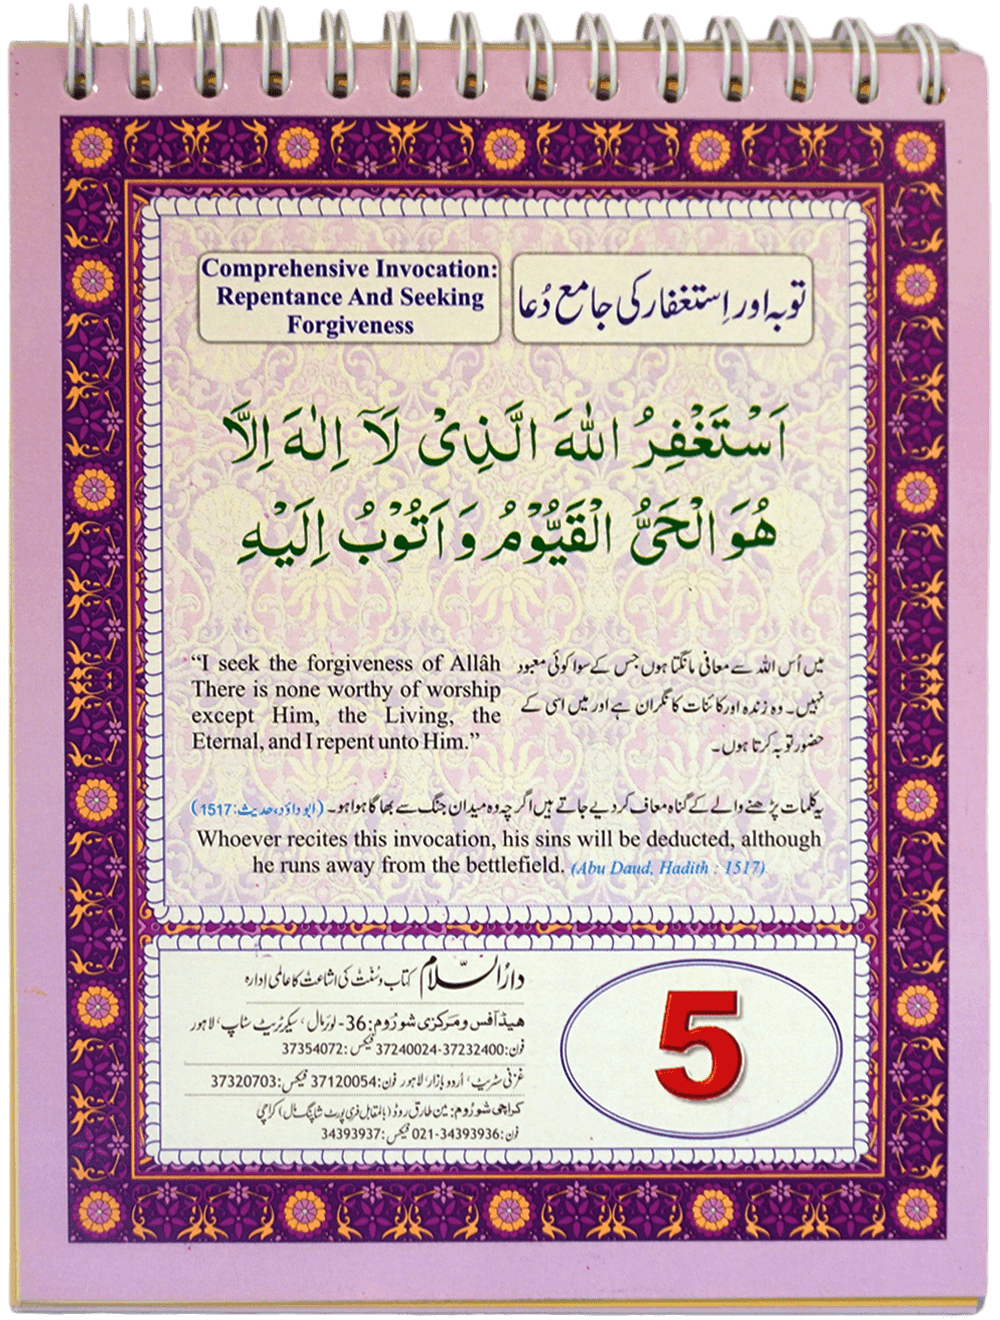 Comprehensive Invocation:
Repentance And Seeking
Forgiveness
توبہ اور اِستغفار کی جامع دُعا
اَسْتَغْفِرُ اللّٰهَ الَّذِىْ لَآ اِلٰهَ اِلَّا
هُوَ الْحَىُّ الْقَيُّوْمُ وَ اَتُوْبُ اِلَيْهِ
“I seek the forgiveness of Allâh
There is none worthy of worship
except Him, the Living, the
Eternal, and I repent unto Him.”
میں اُس اللہ سے معافی مانگتا ہوں جس کے سوا کوئی معبود
نہیں۔ وہ زندہ اور کائنات کا نگران ہے اور میں اسی کے
حضور توبہ کرتا ہوں۔
یہ کلمات پڑھنے والے کے گناہ معاف کر دیے جاتے ہیں اگرچہ وہ میدان جنگ سے بھاگا ہوا ہو۔ (ابوداؤد، حدیث: 1517)
Whoever recites this invocation, his sins will be deducted, although
he runs away from the bettlefield. (Abu Daud, Hadith : 1517)
دارُالسّلام کتاب و سُنّت کی اشاعت کا عالمی اِدارہ
ہیڈ آفس و مرکزی شو رُوم: 36- لوئرمال، سیکرٹریٹ سٹاپ، لاہور
فون: 37240024-37232400 فیکس: 37354072
غزنی سٹریٹ، اُردو بازار، لاہور فون: 37120054 فیکس: 37320703
کراچی شو رُوم: مین طارق روڈ (بالمقابل فری پورٹ شاپنگ مال) کراچی
فون: 021-34393936 فیکس: 34393937
5